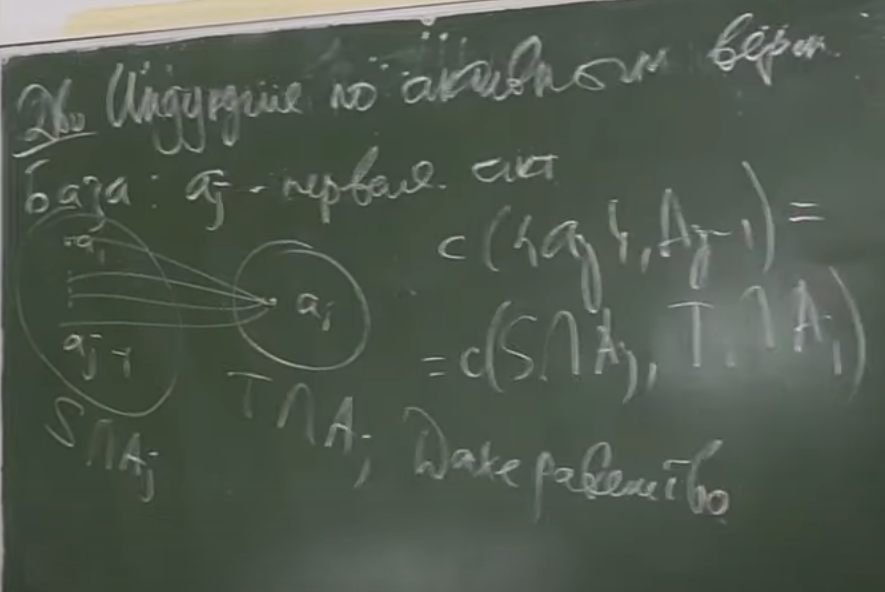 Док. Индукция по активным верш.
База: aⱼ - первая акт
c({aⱼ}, Aⱼ₋₁) =
= c(S∩Aⱼ, T∩Aⱼ)
a₁
aⱼ₋₁
aⱼ
S∩Aⱼ
T∩Aⱼ
Даже равенство